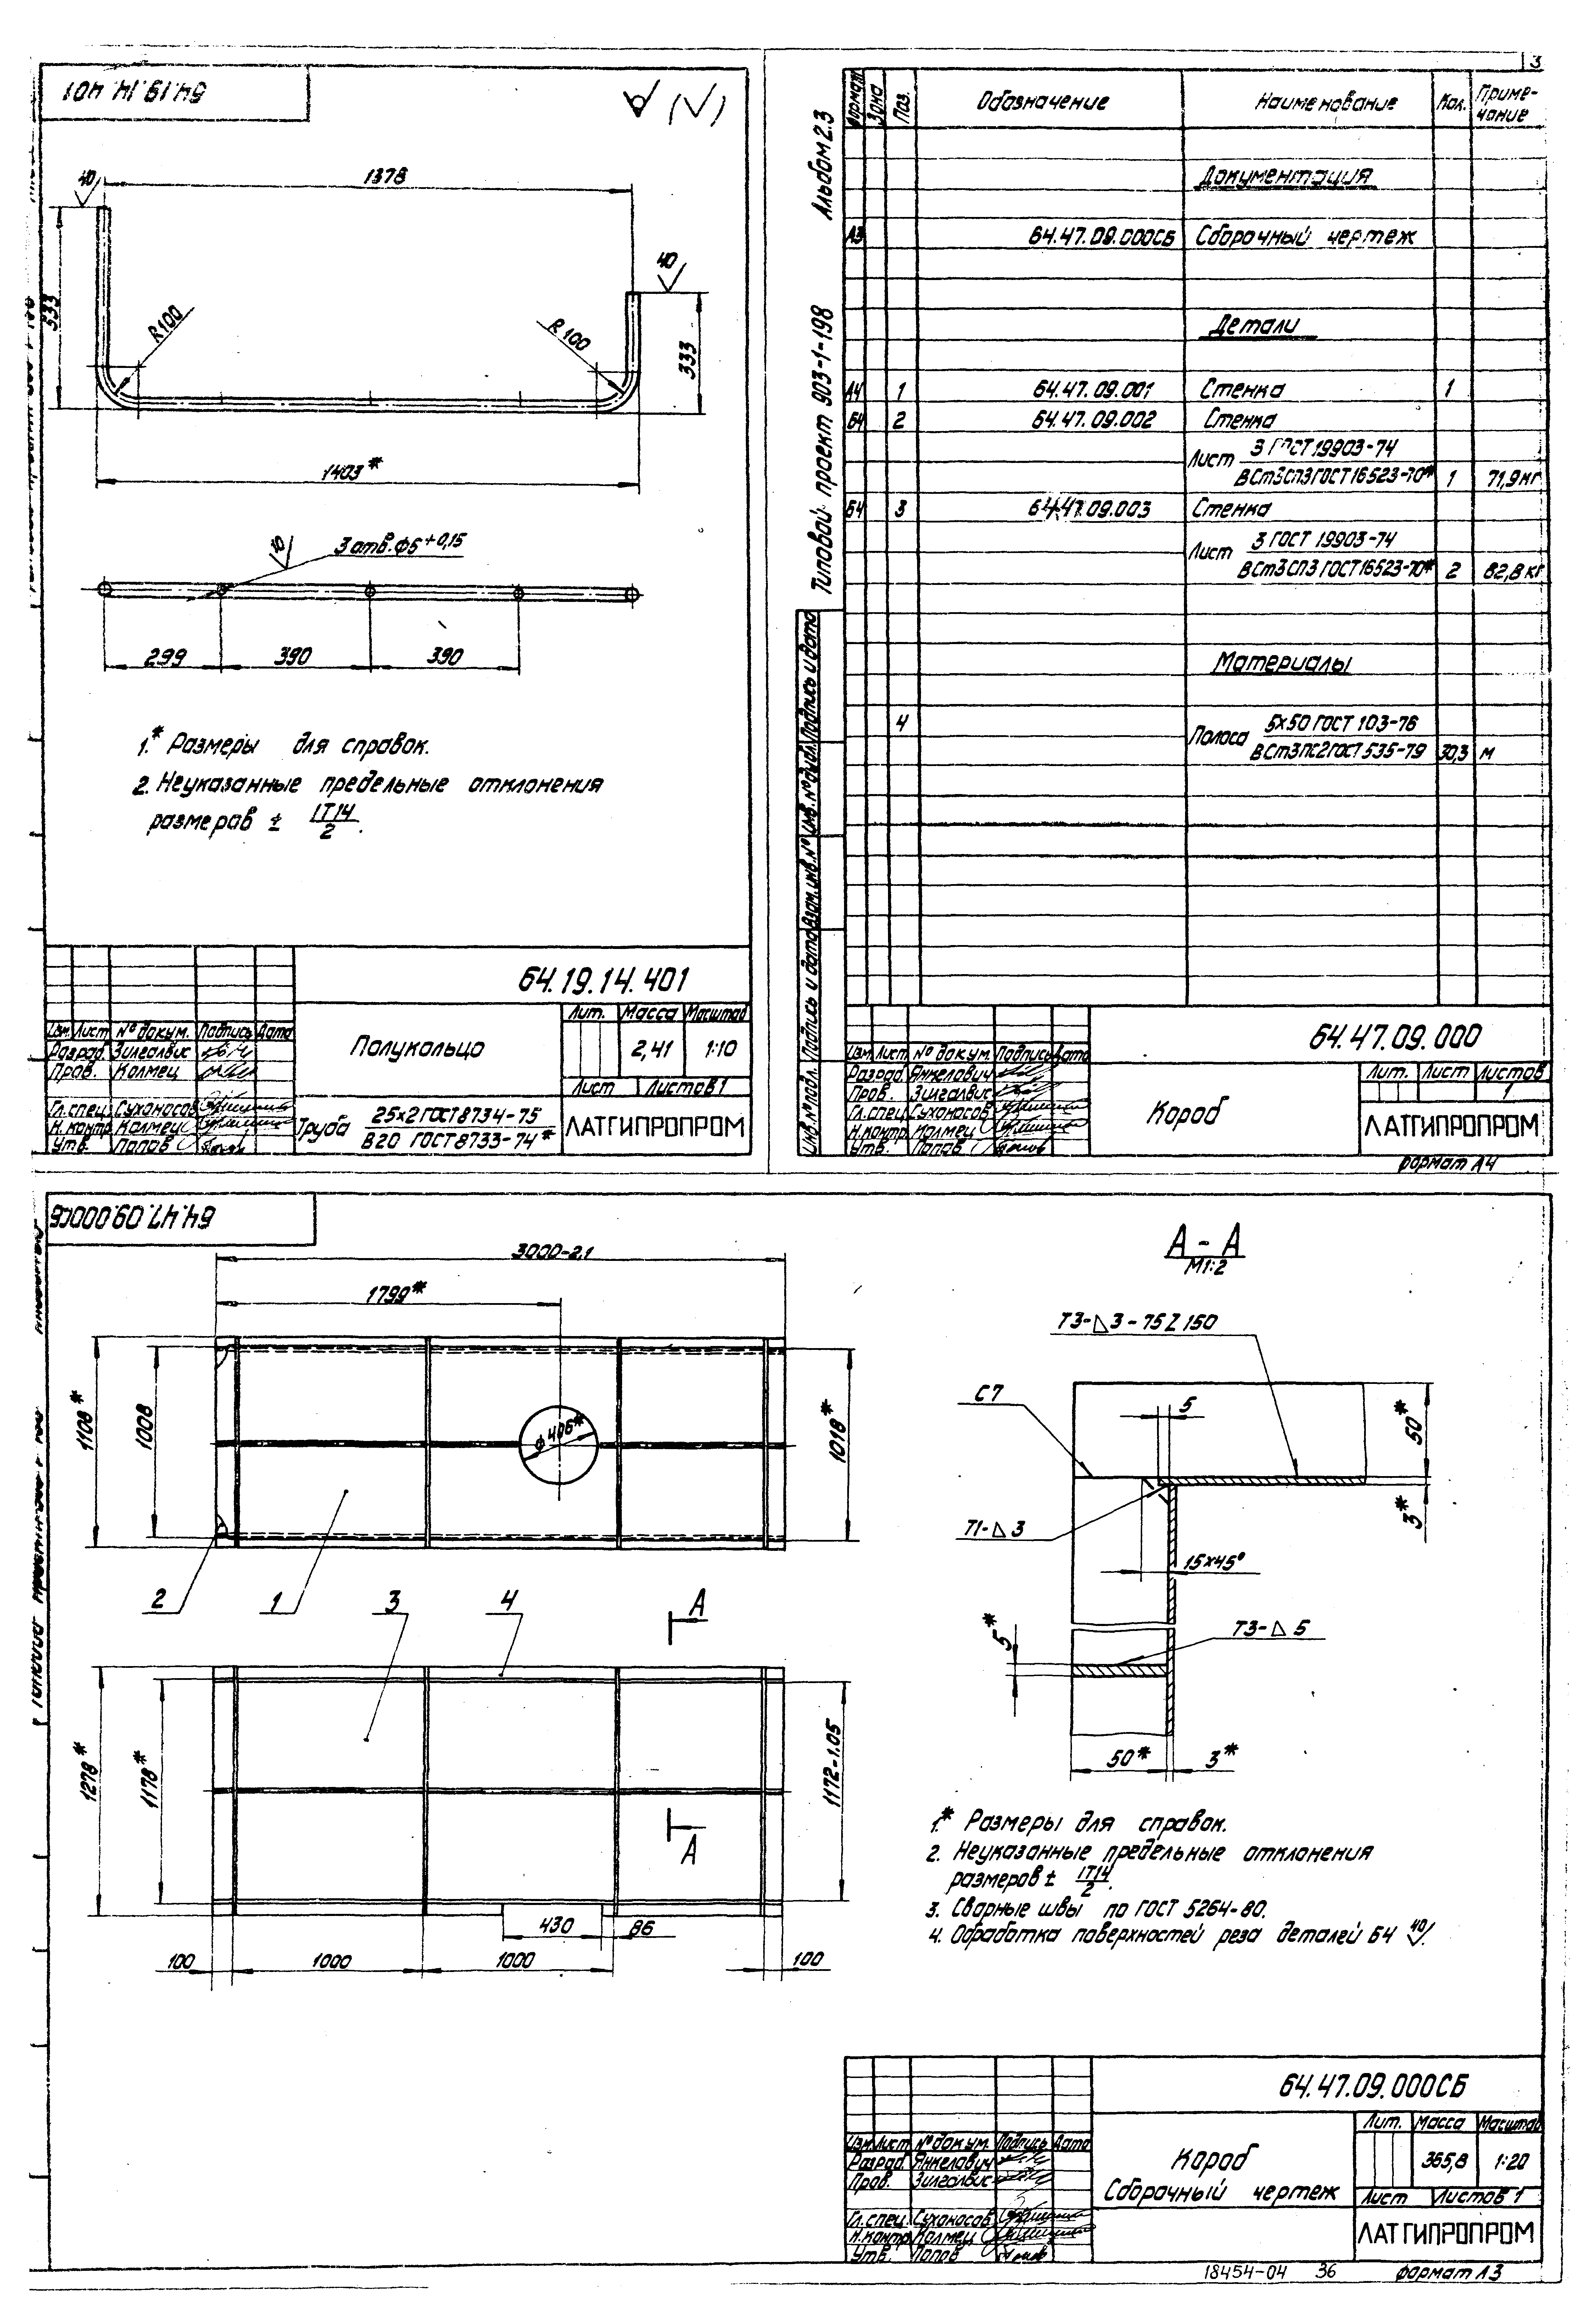 64.19.14.401
√ (√)
40
1378
40
333
R100
R100
333
1403*
10
3 отв. ф5 +0,15
299
390
390
1.* Размеры для справок.
2. Неуказанные предельные отклонения
размеров ± IT14/2.
64.19.14.401
Полукольцо
Лит. Масса Масштаб
2,41 1:10
Лист Листов 1
Изм. Лист № докум. Подпись Дата
Разраб. Зилгалвис
Пров. Колмец
Гл.спец. Сухоносов
Н.контр. Колмец
Утв. Попов
Труба 25х2 ГОСТ 8734-75
В20 ГОСТ 8733-74*
ЛАТГИПРОПРОМ
3
Альбом 2.3
Типовой проект 903-1-198
Формат Зона Поз. Обозначение Наименование Кол. Приме-
чание
Документация
А3 64.47.09.000СБ Сборочный чертеж
Детали
А4 1 64.47.09.001 Стенка 1
Б4 2 64.47.09.002 Стенка
Лист 3 ГОСТ 19903-74
ВСт3СП3 ГОСТ 16523-70* 1 71,9 кг
Б4 3 64.47.09.003 Стенка
Лист 3 ГОСТ 19903-74
ВСт3СП3 ГОСТ 16523-70* 2 82,8 кг
Материалы
4 Полоса 5х50 ГОСТ 103-76
ВСт3пс2 ГОСТ 535-79 30,3 м
Инв.№ подл. Подпись и дата Взам.инв.№ Инв.№ дубл. Подпись и дата
64.47.09.000
Изм. Лист № докум. Подпись Дата
Разраб. Янкелович
Пров. Зилгалвис
Гл.спец. Сухоносов
Н.контр. Колмец
Утв. Попов
Короб
Лит. Лист Листов
1
ЛАТГИПРОПРОМ
формат А4
64.47.09.000СБ
3000-2,1
1799*
1108*
1008
ф 406*
1018*
2 1 3 4
А
1278*
1178*
1172-1,05
А
430
86
100 1000 1000 100
А - А
М1:2
Т3-△3-75Z150
С7
5
50*
3*
Т1-△3
15х45°
5*
Т3-△5
50*
3*
1.* Размеры для справок.
2. Неуказанные предельные отклонения
размеров ± IT14/2.
3. Сварные швы по ГОСТ 5264-80.
4. Обработка поверхностей реза деталей Б4 40√.
64.47.09.000СБ
Изм. Лист № докум. Подпись Дата
Разраб. Янкелович
Пров. Зилгалвис
Гл.спец. Сухоносов
Н.контр. Колмец
Утв. Попов
Короб
Сборочный чертеж
Лит. Масса Масштаб
365,8 1:20
Лист Листов 1
ЛАТГИПРОПРОМ
18454-04 36
формат А3